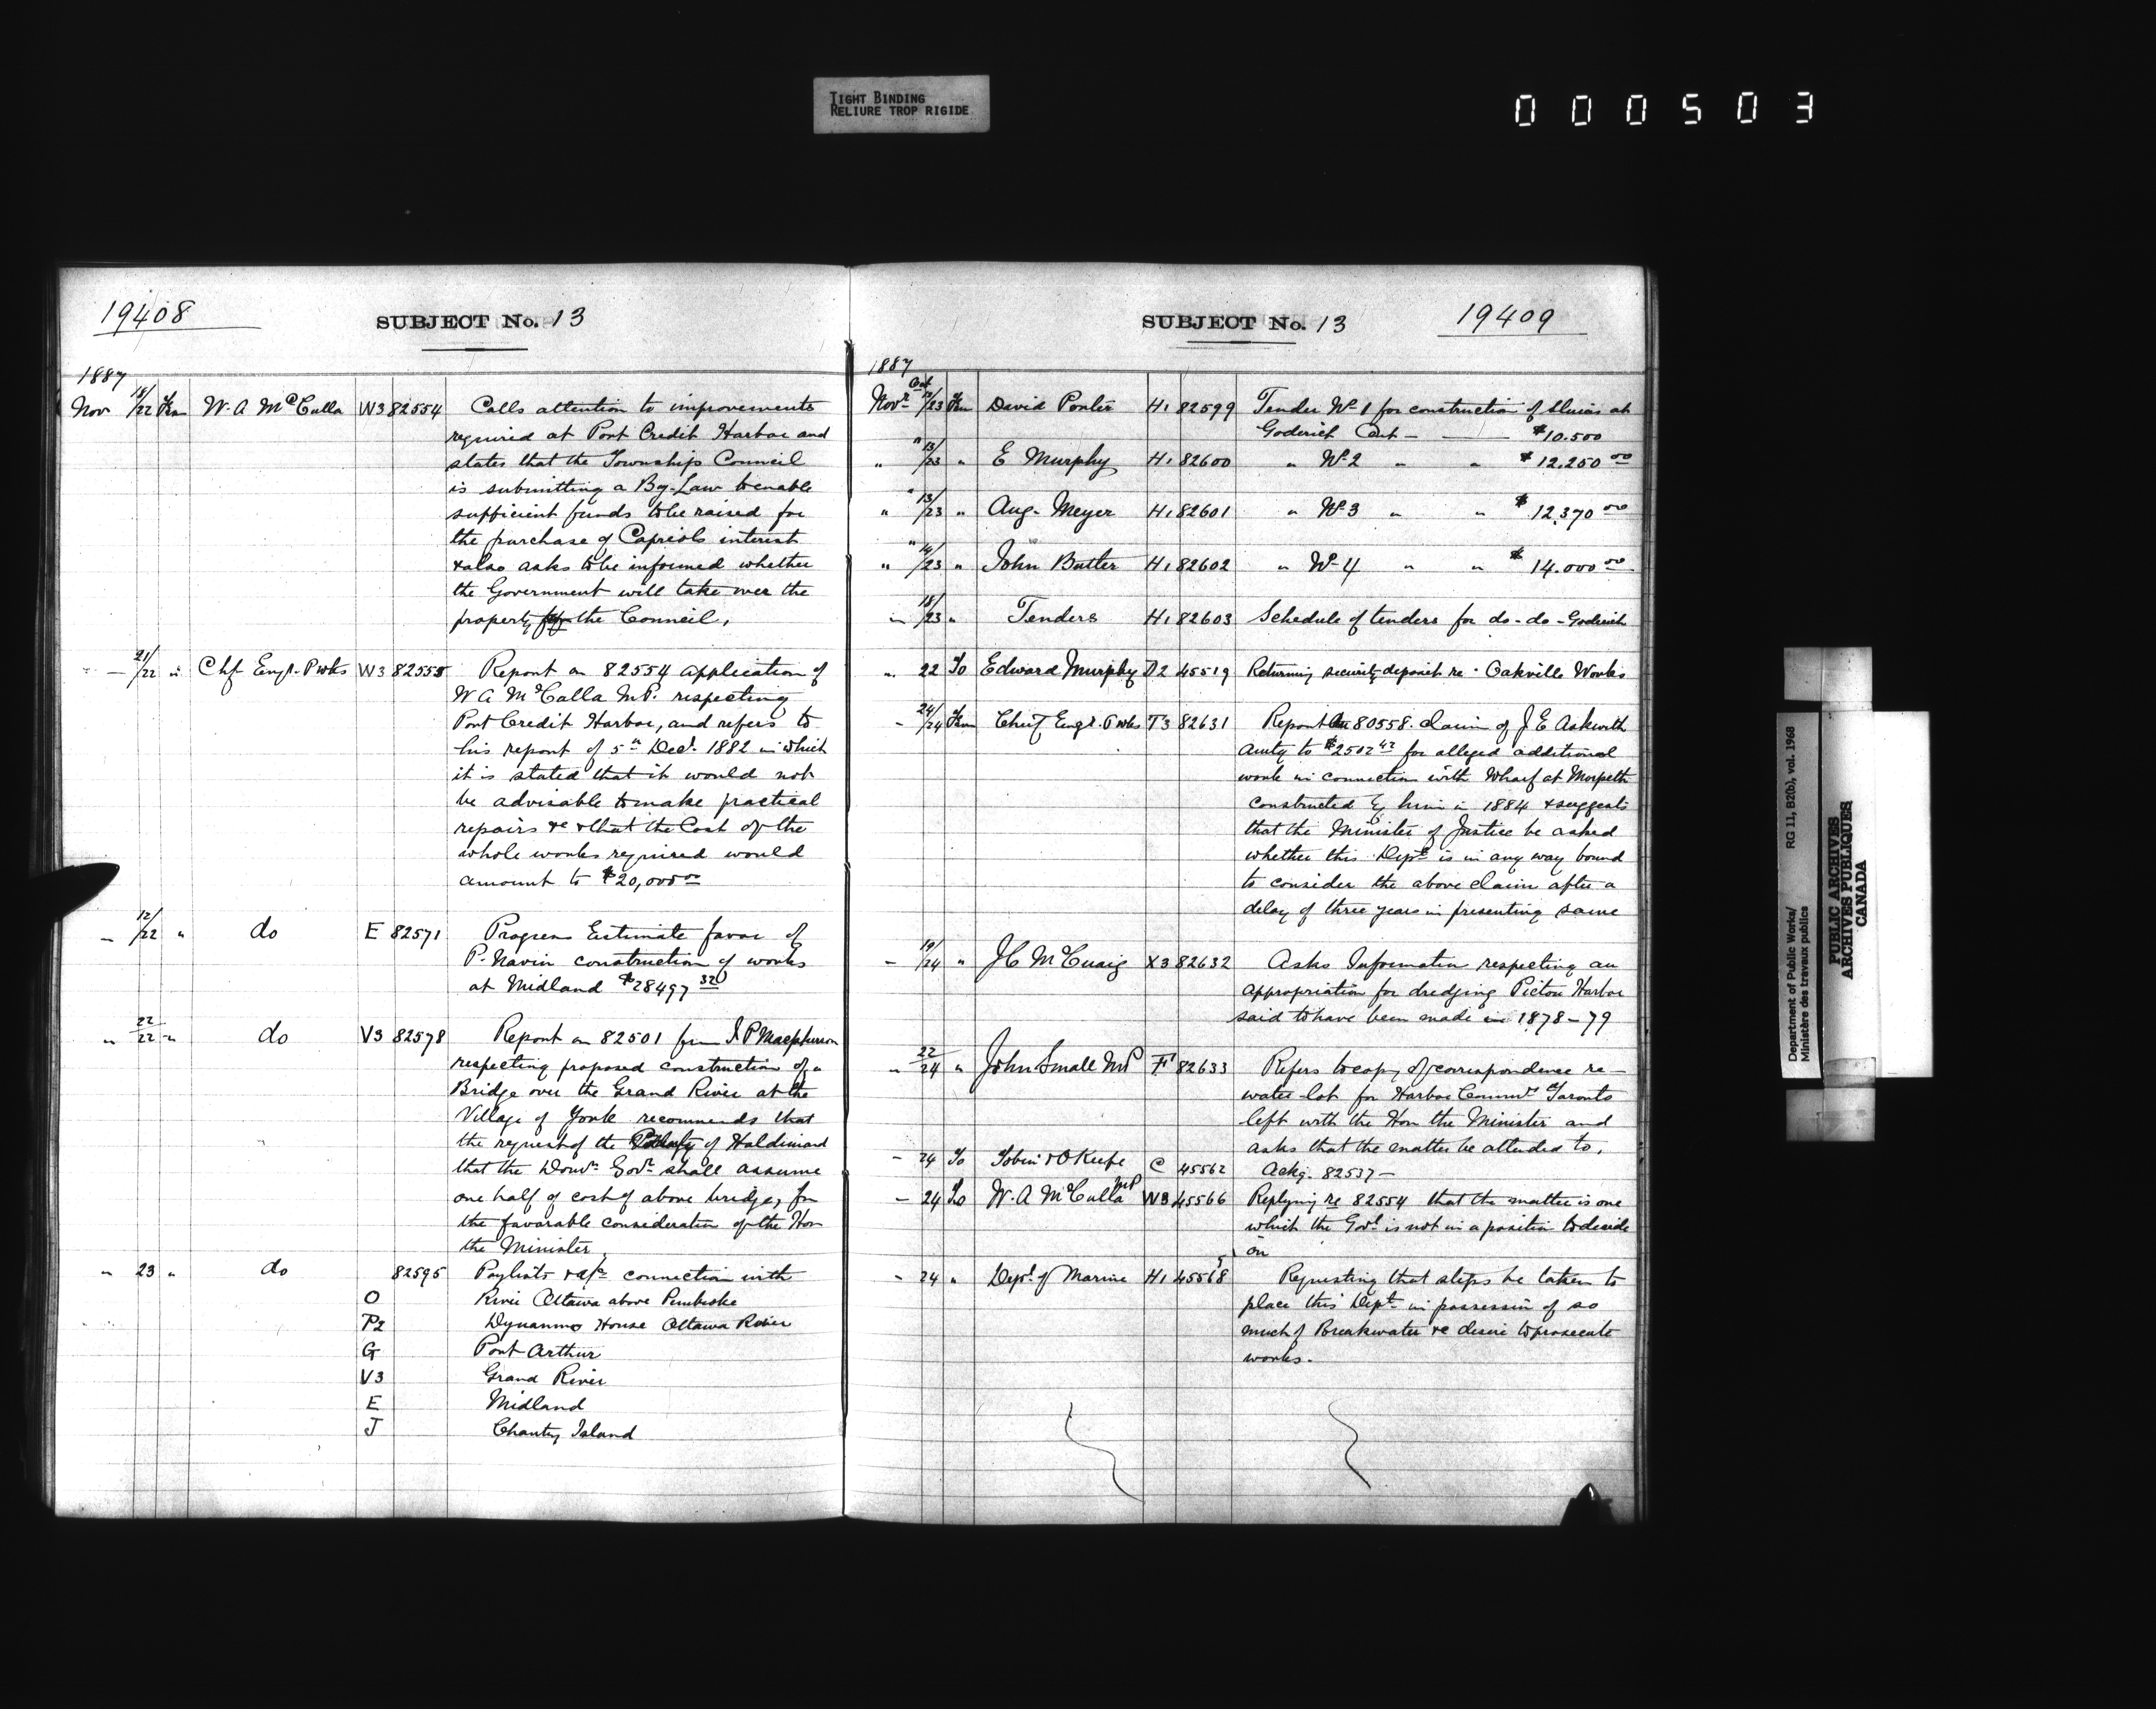 TIGHT BINDING
RELIURE TROP RIGIDE
000503
19408
SUBJECT No. 13
1887
Nov 18/22 Frm W. A McCulla W3 82554 Calls attention to improvements
required at Port Credit Harbor and
states that the Township Council
is submitting a By-Law to enable
sufficient funds to be raised for
the purchase of Capriols interest
& also asks to be informed whether
the Government will take over the
property the Council,
— 21/22 " Chf Engr. P wks W3 82555 Report on 82554 application of
W A McCulla M.P. respecting
Port Credit Harbor, and refers to
his report of 5th Decr. 1882 in which
it is stated that it would not
be advisable to make practical
repairs &c & that the Cost of the
whole works required would
amount to $20,000 00
— 12/22 " do E 82571 Progress Estimate favor of
P. Navin construction of works
at Midland $28497 32
" 22/22 " do V3 82578 Report on 82501 from J. P Macpherson
respecting proposed construction of a
Bridge over the Grand River at the
Village of York recommends that
the request of the of Haldimand
that the Domn. Govt. shall assume
one half of cost of above bridge, for
the favorable consideration of the Hon
the Minister.
" 23 " do 82595 Paylists & a/cs connection with
O River Ottawa above Pembroke
P2 Dynanmo House Ottawa River
G Port Arthur
V3 Grand River
E Midland
J Chantry Island
SUBJECT No. 13
19409
1887
Novr Oct 12/23 Frm David Porter H1 82599 Tender No 1 for construction of Sluices at
Goderich Ont — — $10.500
" " 13/23 " E Murphy H1 82600 " No 2 " " $12.250 00
" " 13/23 " Aug. Meyer H1 82601 " No 3 " " $12,370 00
" " 14/23 " John Butler H1 82602 " No 4 " " $14.000 00
" 18/23 " Tenders H1 82603 Schedule of tenders for do - do - Goderich
" 22 To Edward Murphy D2 45519 Returning security deposit re. Oakville Works
— 24/24 Frm Chief Engr. P wks T3 82631 Report on 80558. claim of J E Askwith
amtg to $2502 42 for alleged additional
work in connection with Wharf at Morpeth
constructed by him in 1884 & suggests
that the Minister of Justice be asked
whether this Dept is in any way bound
to consider the above claim after a
delay of three years in presenting same
— 19/24 " J C McCuaig X3 82632 Asks Information respecting an
appropriation for dredging Picton Harbor
said to have been made in 1878–79
— 22/24 " John Small MP F1 82633 Refers to copy of correspondence re —
water-lot for Harbor Commrs Toronto
left with the Hon the Minister and
asks that the matter be attended to,
— 24 To Tobin & O'Keefe C 45562 Ackg. 82537 —
— 24 To W. A McCulla MP W3 45566 Replying re 82554 that the matter is one
which the Govt is not in a position to decide
on
— 24 " Dept. of Marine H1 45568 Requesting that steps be taken to
place this Dept in possession of so
much of Breakwater &c desire to prosecute
works.
Department of Public Works/
Ministère des travaux publics
RG 11, B2(b), vol. 1968
PUBLIC ARCHIVES
ARCHIVES PUBLIQUES
CANADA